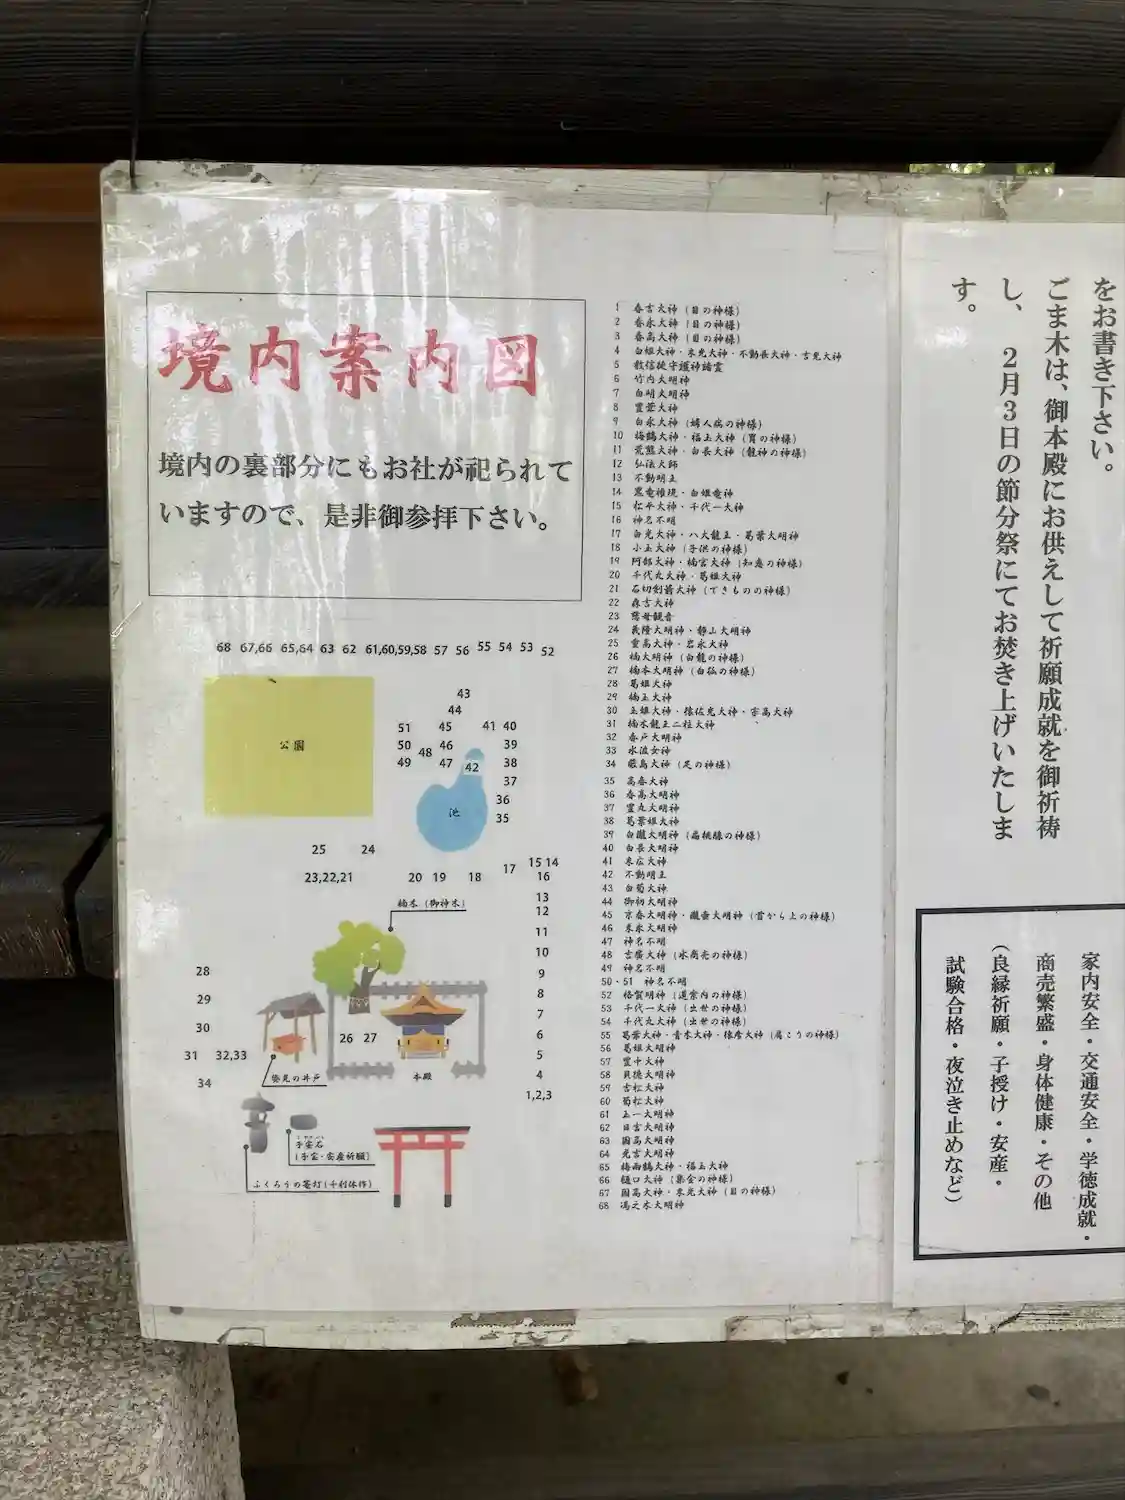 境内案内図
境内の裏部分にもお社が祀られて
いますので、是非御参拝下さい。
68 67,66 65,64 63 62 61,60,59,58 57 56 55 54 53 52
公園
43
44
51 45 41 40
50 48 46 39
49 47 42 38
37
池 36
35
25 24
23,22,21 20 19 18 17 15 14
16
楠木(御神木)
13
12
11
10
9
8
7
6
5
4
1,2,3
28
29
30
31 32,33
34
26 27
本殿
姿見の井戸
子宝石
(子宝・安産祈願)
ふくろうの灯(千利休作)
1 春吉大神(目の神様)
2 春永大神(目の神様)
3 春高大神(目の神様)
4 白姫大神・末光大神・不動長大神・吉光大神
5 教信徒守護神諸霊
6 竹内大明神
7 白明大明神
8 豊大神
9 白永大神(婦人病の神様)
10 梅鶴大神・福玉大神(胃の神様)
11 荒熊大神・白長大神(龍神の神様)
12 弘法大師
13 不動明王
14 黒竜権現・白姫竜神
15 松平大神・千代一大神
16 神名不明
17 白光大神・八大龍王・葛葉大明神
18 小玉大神(子供の神様)
19 阿部大神・楠宮大神(知恵の神様)
20 千代丸大神・葛姫大神
21 石切剣箭大神(できものの神様)
22 森吉大神
23 慈母観音
24 義隆大明神・静山大明神
25 重高大神・岩永大神
26 楠大明神(白龍の神様)
27 楠本大明神(白狐の神様)
28 葛姫大神
29 楠玉大神
30 玉姫大神・猿佐光大神・宗高大神
31 楠木龍王二柱大神
32 春戸大明神
33 水波女神
34 厳島大神(足の神様)
35 高春大神
36 春高大明神
37 豊丸大明神
38 葛葉姫大神
39 白瀧大明神(扁桃腺の神様)
40 白長大明神
41 末広大神
42 不動明王
43 白菊大神
44 御初大明神
45 京春大明神・瀧壷大明神(首から上の神様)
46 末永大明神
47 神名不明
48 吉廣大神(水商売の神様)
49 神名不明
50・51 神名不明
52 格賀明神(道案内の神様)
53 千代一大神(出世の神様)
54 千代丸大神(出世の神様)
55 葛葉大神・青木大神・猿彦大神(肩こりの神様)
56 葛姫大明神
57 豊中大神
58 貝徳大明神
59 吉松大神
60 菊松大神
61 玉一大明神
62 日吉大明神
63 国高大明神
64 光吉大明神
65 梅雨鶴大神・福玉大神
66 樋口大神(集金の神様)
67 国高大神・末光大神(目の神様)
68 馮之木大明神
をお書き下さい。
ごま木は、御本殿にお供えして祈願成就を御祈祷
し、2月3日の節分祭にてお焚き上げいたしま
す。
家内安全・交通安全・学徳成就・
商売繁盛・身体健康・その他
(良縁祈願・子授け・安産・
試験合格・夜泣き止めなど)